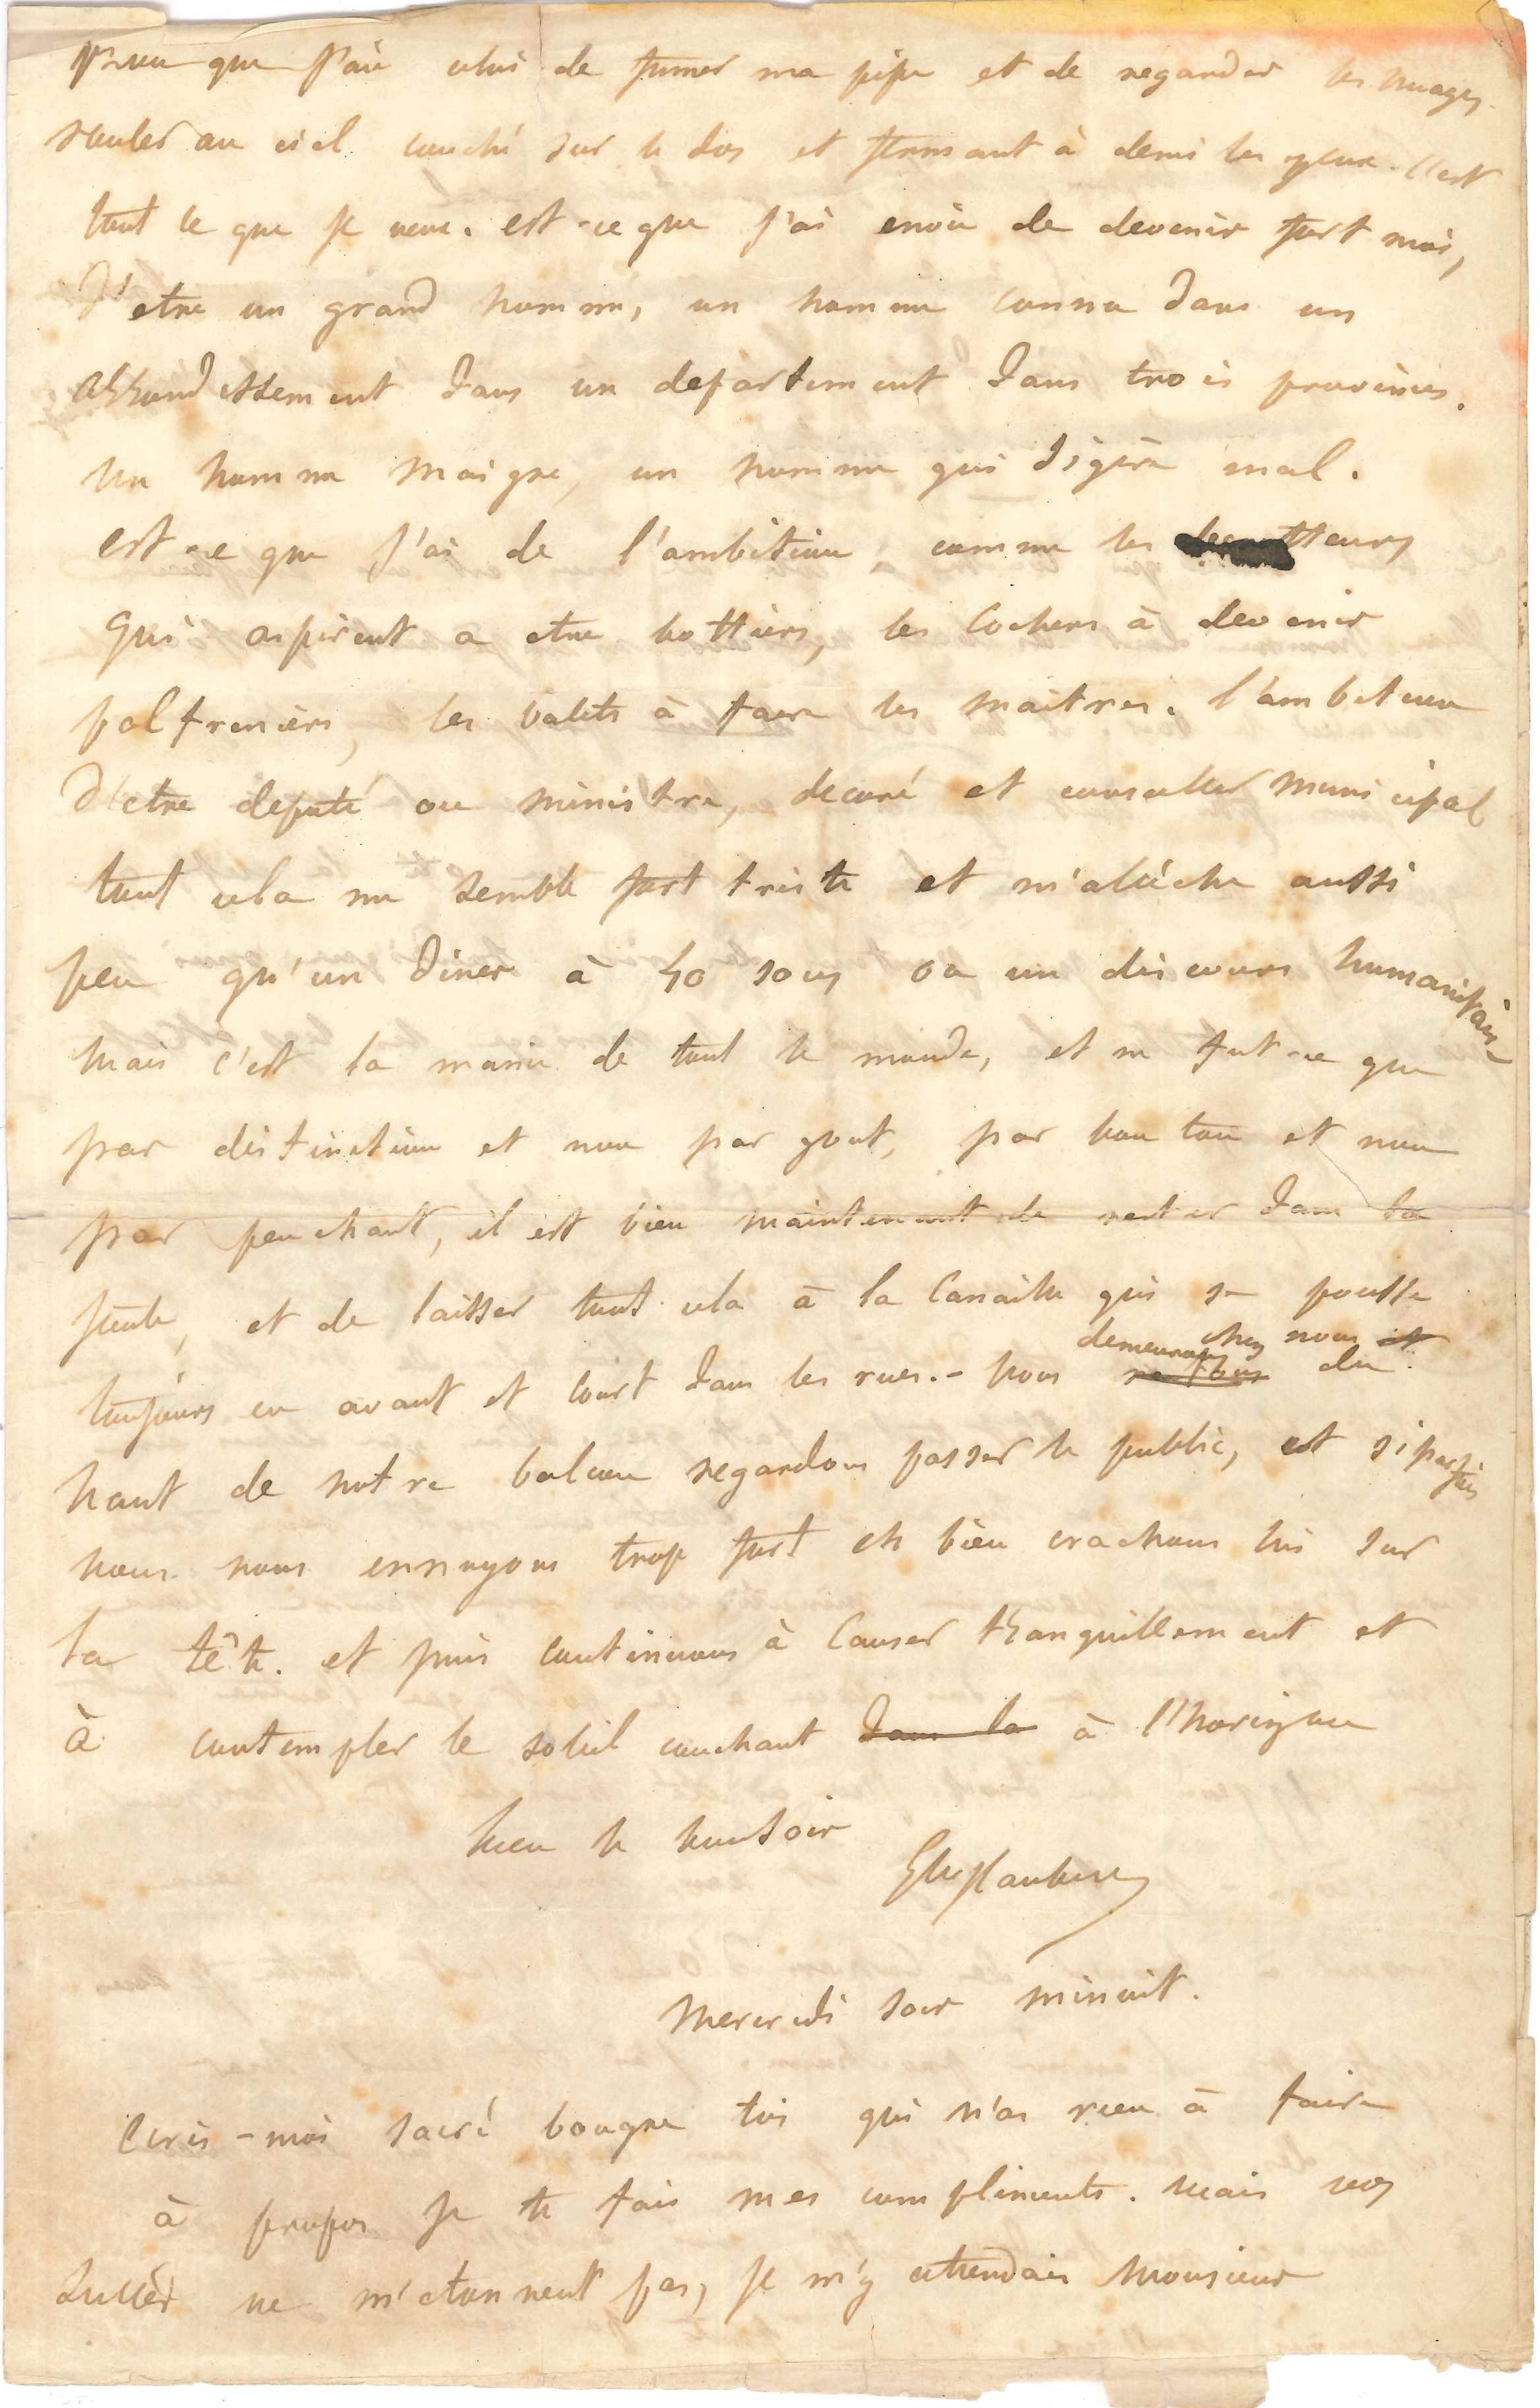 pourvu que j'aie celui de fumer ma pipe et de regarder les nuages
rouler au ciel couché sur le dos et fermant à demi les yeux. c'est
tout ce que je veux. est-ce que j'ai envie de devenir fort moi,
d'etre un grand homme, un homme connu dans un
arrondissement dans un departement dans trois provinces.
un homme maigre, un homme qui digère mal.
est-ce que j'ai de l'ambition, comme les decrotteurs
qui aspirent a etre bottiers, les cochers à devenir
palfreniers, les valets à faire les maitres. l'ambition
d'etre deputé ou ministre, decoré et conseiller municipal
tout cela me semble fort triste et m'allèche aussi
peu qu'un diner à 40 sous ou un discours humanitaire
mais c'est la manie de tout le monde, et ne fut-ce que
par distinction et non par gout, par bon ton et non
par penchant, il est bien maintenant de rester dans la
foule, et de laisser tout cela à la canaille qui se pousse
toujours en avant et court dans les rues. - nous restons demeurons chez nous et du
haut de notre balcon regardons passer le public, et si parfois
nous nous ennuyons trop fort eh bien crachons lui sur
la tête. et puis continuons à causer tranquillement et
à contempler le soleil couchant dans la à l'horizon
bien le bonsoir
Gve flaubert
Mercredi soir minuit.
Ecris-moi sacré bougre toi qui n'as rien à faire
à propos je te fais mes compliments. mais vos
succès ne m'etonnent pas, je m'y attendais Monsieur